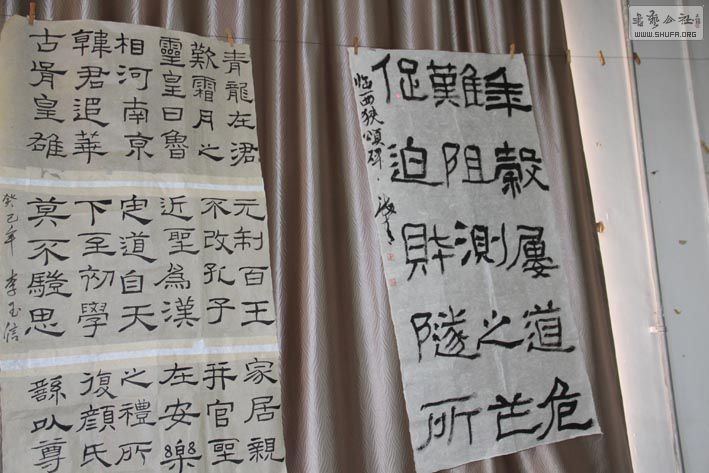 青龍在涒
歎霜月之
靈皇日魯
相河南京
韓君追華
古胥皇雄
元制百王
不改孔子
近聖為漢
定道自天
下至初學
莫不驗思
癸巳年 李玉信
家居親
并官聖
在安樂
之禮所
復顏氏
繇以尊
年穀屢道危
難阻測之芒
促迫財隧所
临西狭頌碑
書藝公社
WWW.SHUFA.ORG